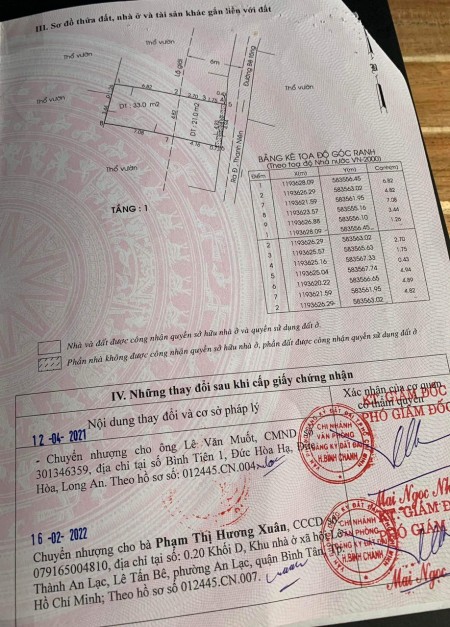 III. Sơ đồ thửa đất, nhà ở và tài sản khác gắn liền với đất
Thổ vườn
Thổ vườn
Thổ vườn
Thổ vườn
Lộ giới
6m
Đường Bê tông
Ra Đ. Thanh Niên
DT: 33.0 m2
DT: 21.0 m2
TẦNG : 1
BẢNG KÊ TỌA ĐỘ GÓC RANH
(Theo tọa độ Nhà nước VN-2000)
Điểm X(m) Y(m) Cạnh(m)
1 1193628.09 583556.45 6.82
2 1193626.29 583563.02 4.82
7 1193621.59 583561.95 7.08
8 1193623.57 583555.16 3.44
9 1193626.88 583556.10 1.26
1 1193628.09 583556.45
2 1193626.29 583563.02 2.70
3 1193625.57 583565.63 1.75
4 1193625.16 583567.33 0.43
5 1193625.04 583567.74 4.94
6 1193620.22 583566.65 4.89
7 1193621.59 583561.95 4.82
2 1193626.29 583563.02
Nhà và đất được công nhận quyền sở hữu nhà ở và quyền sử dụng đất ở.
Phần nhà không được công nhận quyền sở hữu nhà ở, phần đất được công nhận quyền sử dụng đất ở
IV. Những thay đổi sau khi cấp giấy chứng nhận
Nội dung thay đổi và cơ sở pháp lý
Xác nhận của cơ quan
có thẩm quyền
KT. GIÁM ĐỐC
PHÓ GIÁM ĐỐC
12 -04- 2021
- Chuyển nhượng cho ông Lê Văn Muốt, CMND
301346359, địa chỉ tại số Bình Tiên 1, Đức Hòa Hạ, Đức
Hòa, Long An. Theo hồ sơ số: 012445.CN.004
CHI NHÁNH
VĂN PHÒNG
ĐĂNG KÝ ĐẤT ĐAI
H.BÌNH CHÁNH
Mai Ngọc
16 -02- 2022
Chuyển nhượng cho bà Phạm Thị Hương Xuân, CCCD
079165004810, địa chỉ tại số: 0.20 Khối D, Khu nhà ở xã hội
Thành An Lạc, Lê Tấn Bê, phường An Lạc, quận Bình Tân,
Hồ Chí Minh; Theo hồ sơ số: 012445.CN.007.
PHÓ GIÁM
CHI NHÁNH
VĂN PHÒNG
ĐĂNG KÝ ĐẤT ĐAI
H.BÌNH CHÁNH
Mai Ngọc